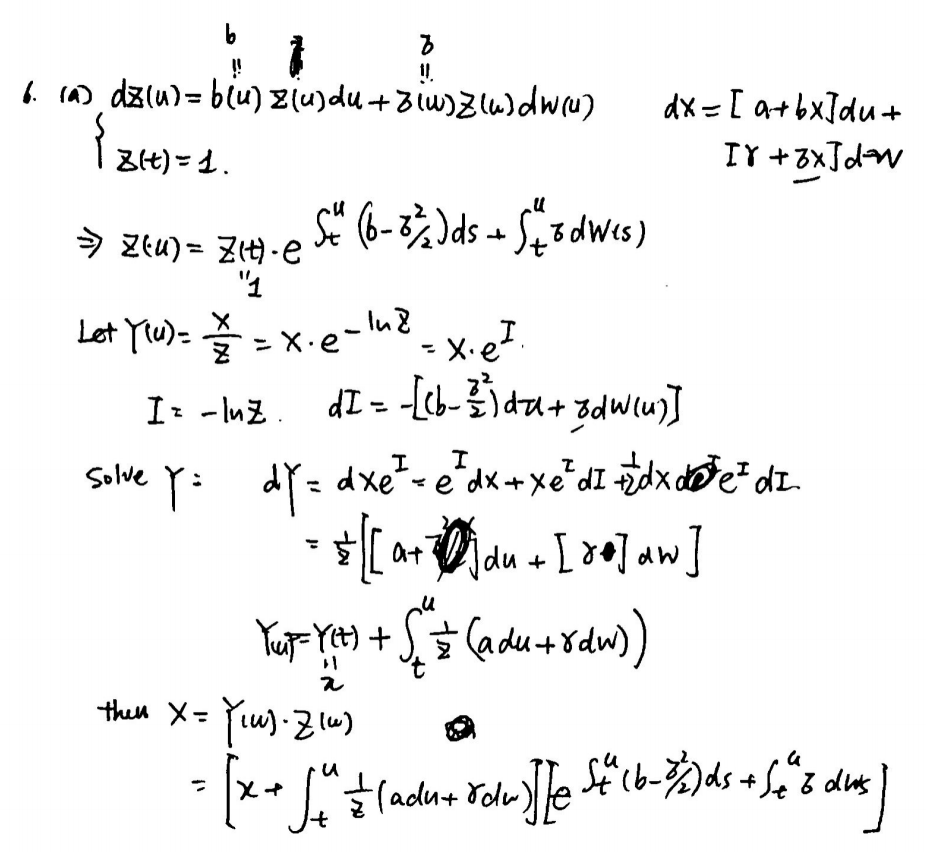 b 3
" "
6. (a) dz(u) = b(u) z(u) du + 3(u) Z(u) dw(u) dx = [ a + bx ] du +
{ z(t) = 1. [ γ + 3x ] dw
⇒ z(u) = z(t) · e ∫_t^u (b - 3²/2) ds + ∫_t^u 3 dW(s)
"1
Let Y(u) = X/Z = X · e^{-ln Z} = X · e^I.
I = -ln Z. dI = -[(b - 3²/2) du + 3 dW(u)]
Solve Y : dY = dx e^I = e^I dx + x e^I dI + ½ dx e^I dI
= 1/Z [[ a + ] du + [ γ ] dw ]
Y(u) = Y(t) + ∫_t^u 1/Z (a du + γ dw))
"
x
then X = Y(u) · Z(u)
= [ x + ∫_t^u 1/Z (a du + γ dw) ] [ e ∫_t^u (b - 3²/2) ds + ∫_t^u 3 dws ]